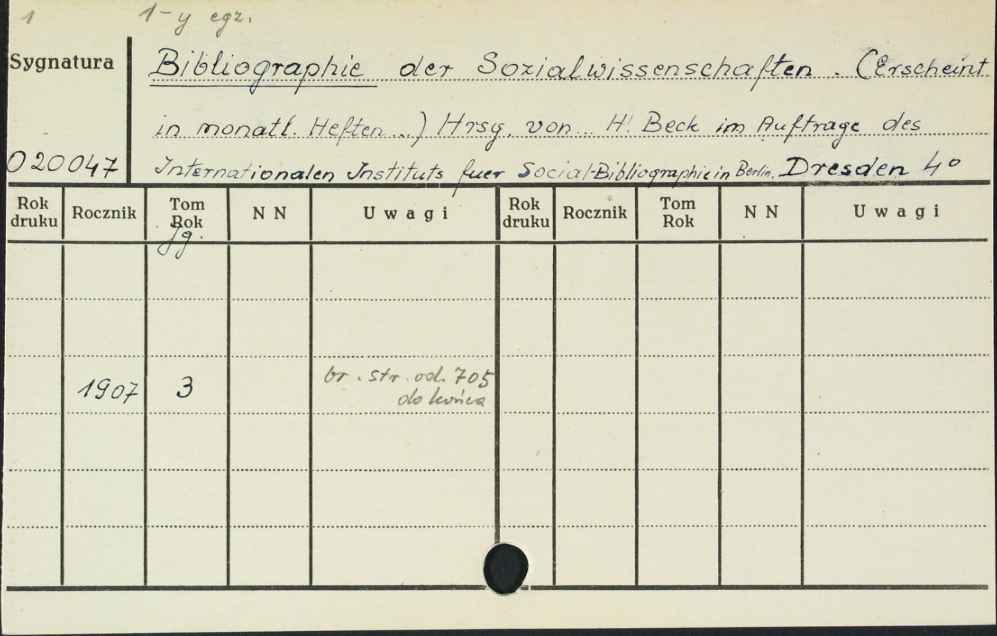 1 1-y egz.
Sygnatura
Bibliographie der Sozialwissenschaften. (Erscheint
in monatl. Heften...) Hrsg. von... H. Beck im Auftrage des
020047 Internationalen Instituts fuer Social-Bibliographie in Berlin. Dresden 4°
Rok druku Rocznik Tom Rok NN Uwagi Rok druku Rocznik Tom Rok NN Uwagi
Jg.
1907 3 br. str. od. 705
do końca